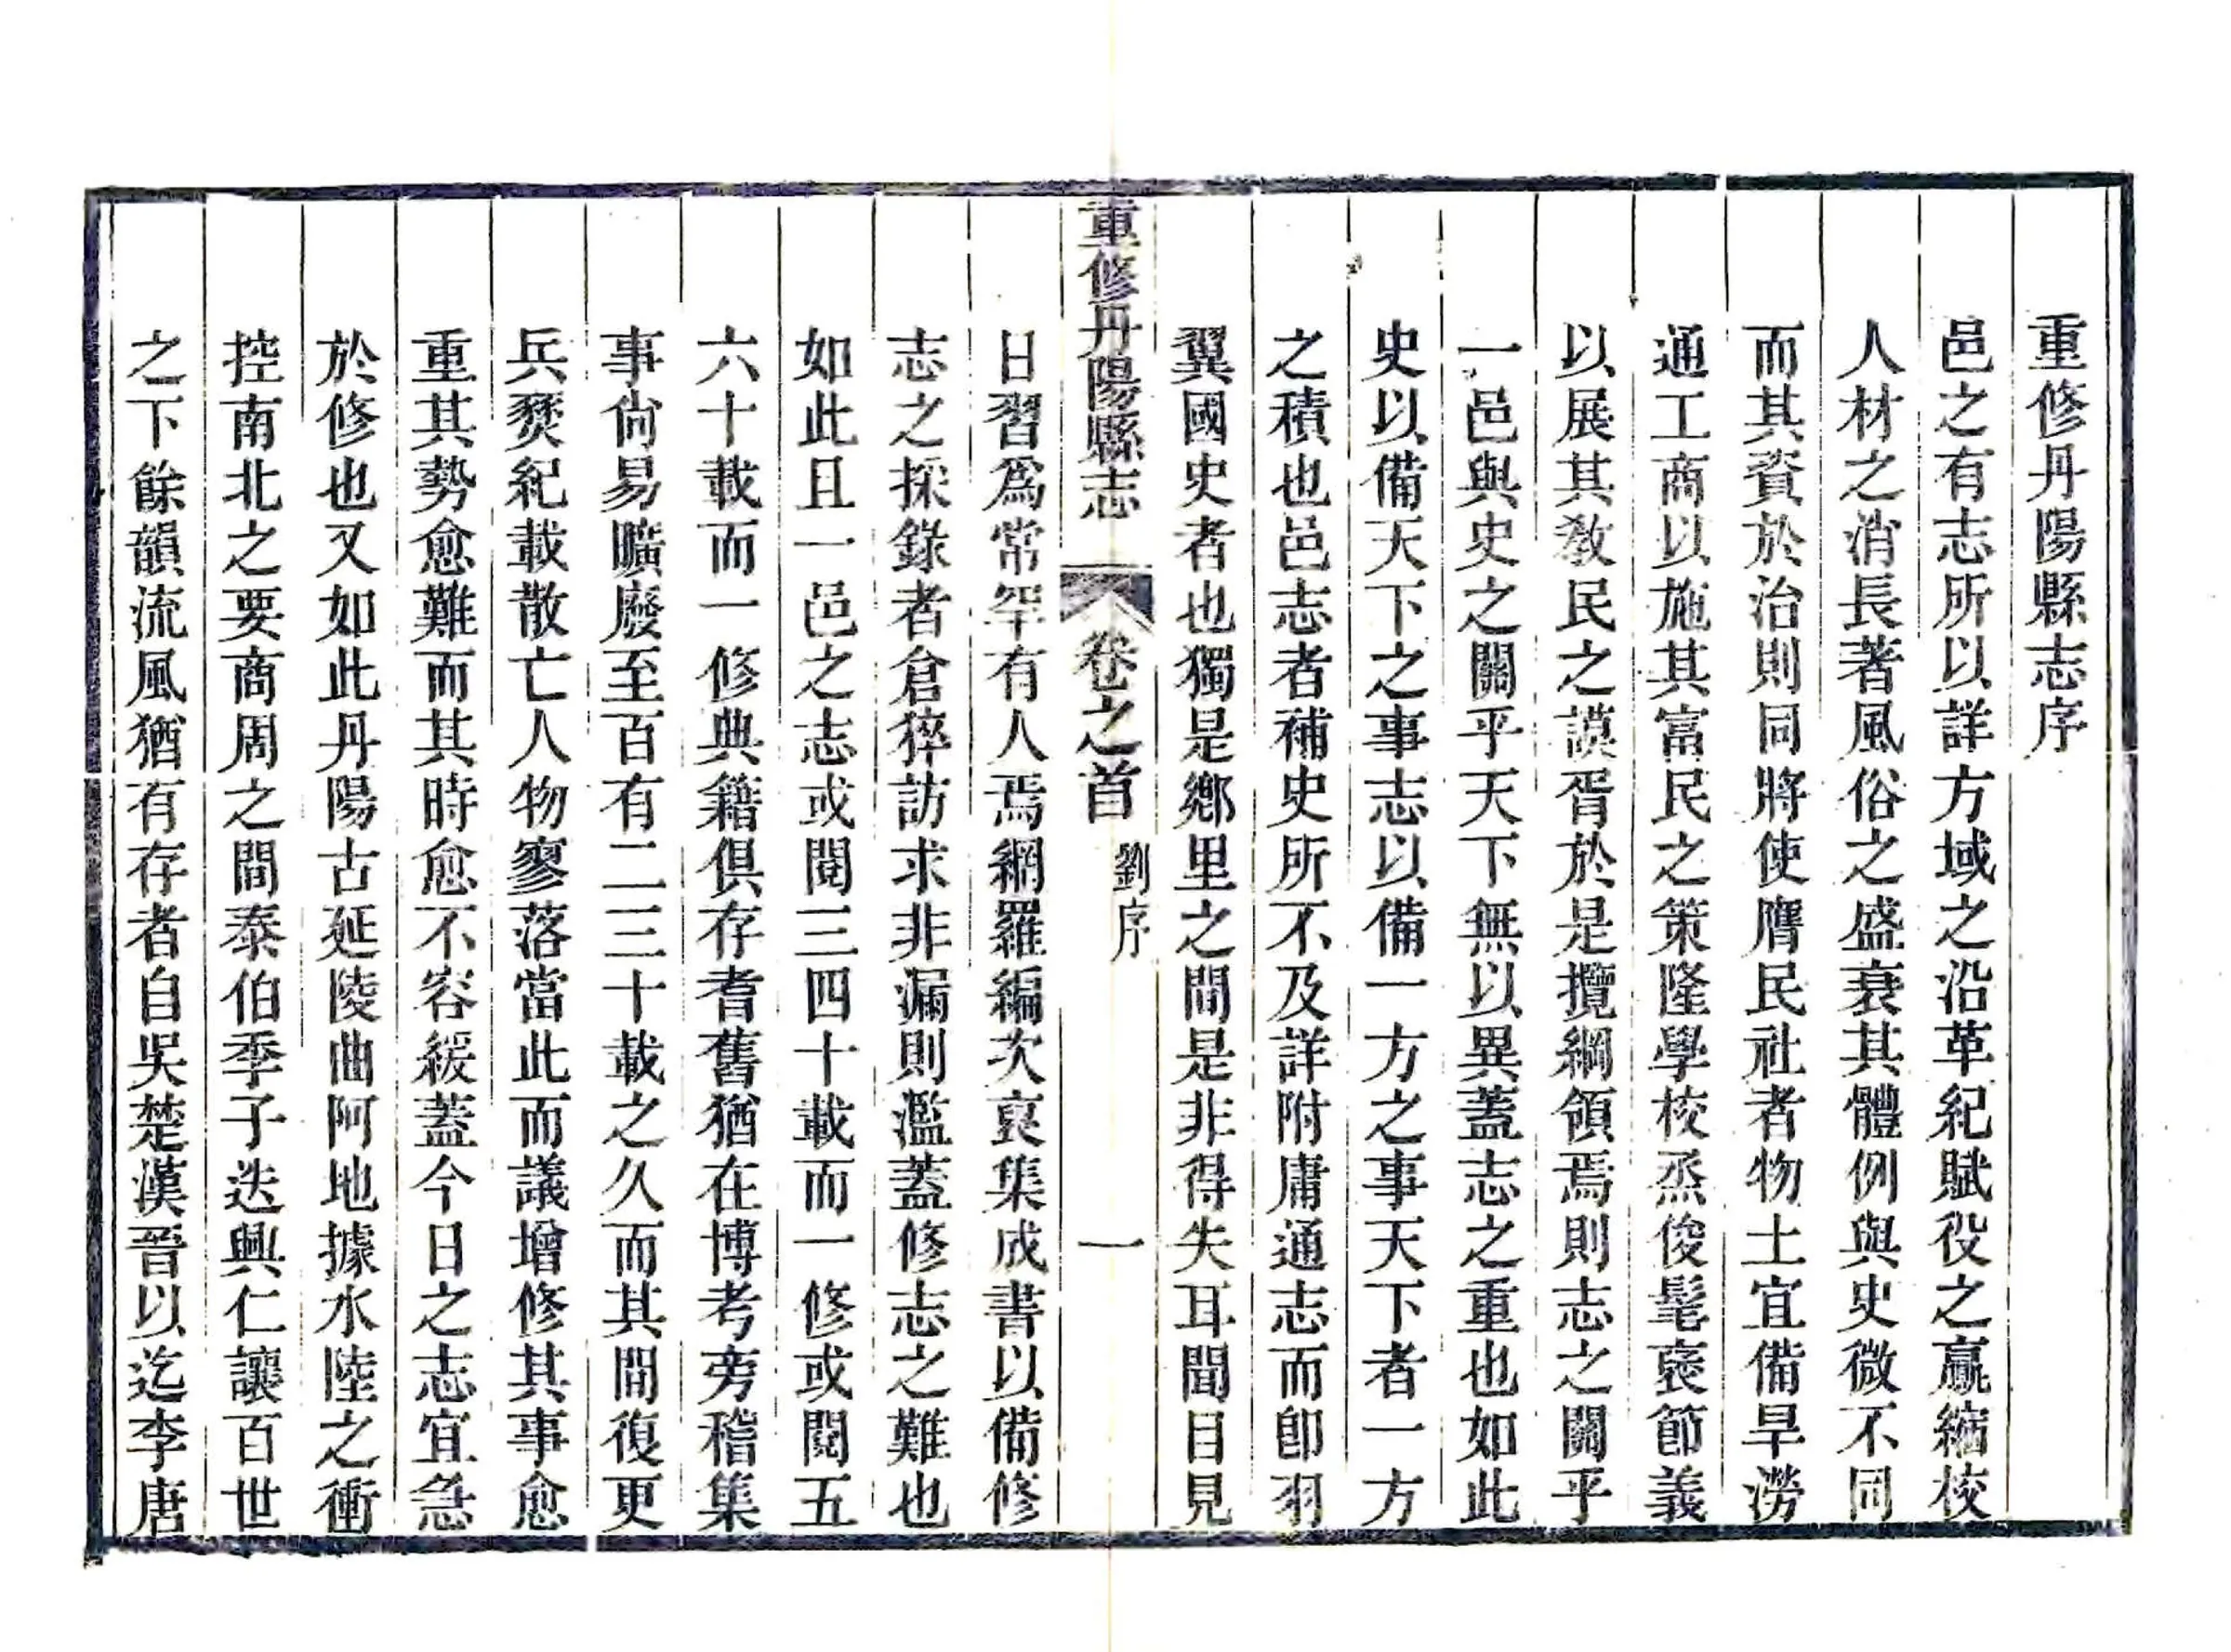 重修丹陽縣志序
邑之有志所以詳方域之沿革紀賦役之贏縮校
人材之消長著風俗之盛衰其體例與史微不同
而其資於治則同將使膺民社者物土宜備旱澇
通工商以施其富民之策隆學校烝俊髦褒節義
以展其敎民之謨胥於是攬綱領焉則志之關乎
一邑與史之關乎天下無以異蓋志之重也如此
史以備天下之事志以備一方之事天下者一方
之積也邑志者補史所不及詳附庸通志而卽羽
翼國史者也獨是鄉里之間是非得失耳聞目見
重修丹陽縣志
卷之首
劉序
一
日習爲常罕有人焉網羅編次裒集成書以備修
志之採錄者倉猝訪求非漏則濫蓋修志之難也
如此且一邑之志或閱三四十載而一修或閱五
六十載而一修典籍俱存耆舊猶在博考旁稽集
事尙易曠廢至百有二三十載之久而其間復更
兵燹紀載散亡人物寥落當此而議增修其事愈
重其勢愈難而其時愈不容緩蓋今日之志宜急
於修也又如此丹陽古延陵曲阿地據水陸之衝
控南北之要商周之間泰伯季子迭興仁讓百世
之下餘韻流風猶有存者自吳楚漢晉以迄李唐